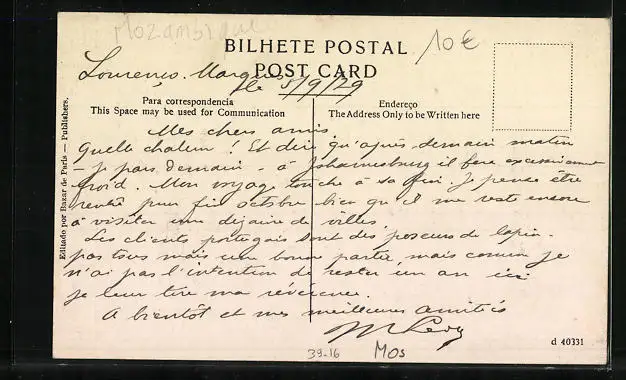 Mozambique
BILHETE POSTAL
10€
POST CARD
Lourenço-Marques le 5/9/29
Para correspondencia
This Space may be used for Communication
Endereço
The Address Only to be Written here
Editado por Bazar de Paris — Publishers.
Mes chers amis
Quelle chaleur ! Et dire qu'après-demain matin
- je pars demain - à Johannesburg il fera excessivement
froid. Mon voyage touche à sa fin. Je pense être
rentré pour fin octobre bien qu'il me reste encore
à visiter une dizaine de villes.
Les clients portugais sont des poseurs de lapin.
pas tous mais une bonne partie, mais comme je
n'ai pas l'intention de rester un an ici
je leur tire ma révérence.
A bientôt et mes meilleures amitiés
M Levy
d 40331
39-16
Mos